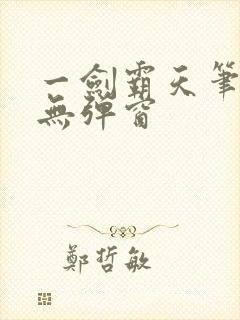 一劍霸天筆
無彈窗
鄭哲敏